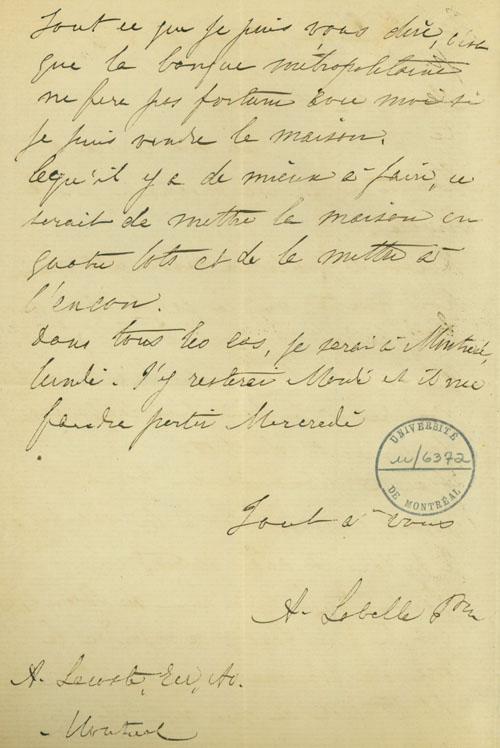 Tout ce que je puis vous dire, c'est
que la banque métropolitaine
ne fera pas fortune avec moi si
je puis vendre la maison.
Ce qu'il y a de mieux à faire, ce
serait de mettre la maison en
quatre lots et de la mettre à
l'encan.
Dans tous les cas, je serai à Montréal,
lundi. J'y resterai Mardi et il me
faudra partir Mercredi
UNIVERSITÉ
u/6372
DE MONTRÉAL
Tout à vous
A. Labelle Ptre
A. Lacoste, Ecr, Av.
Montréal